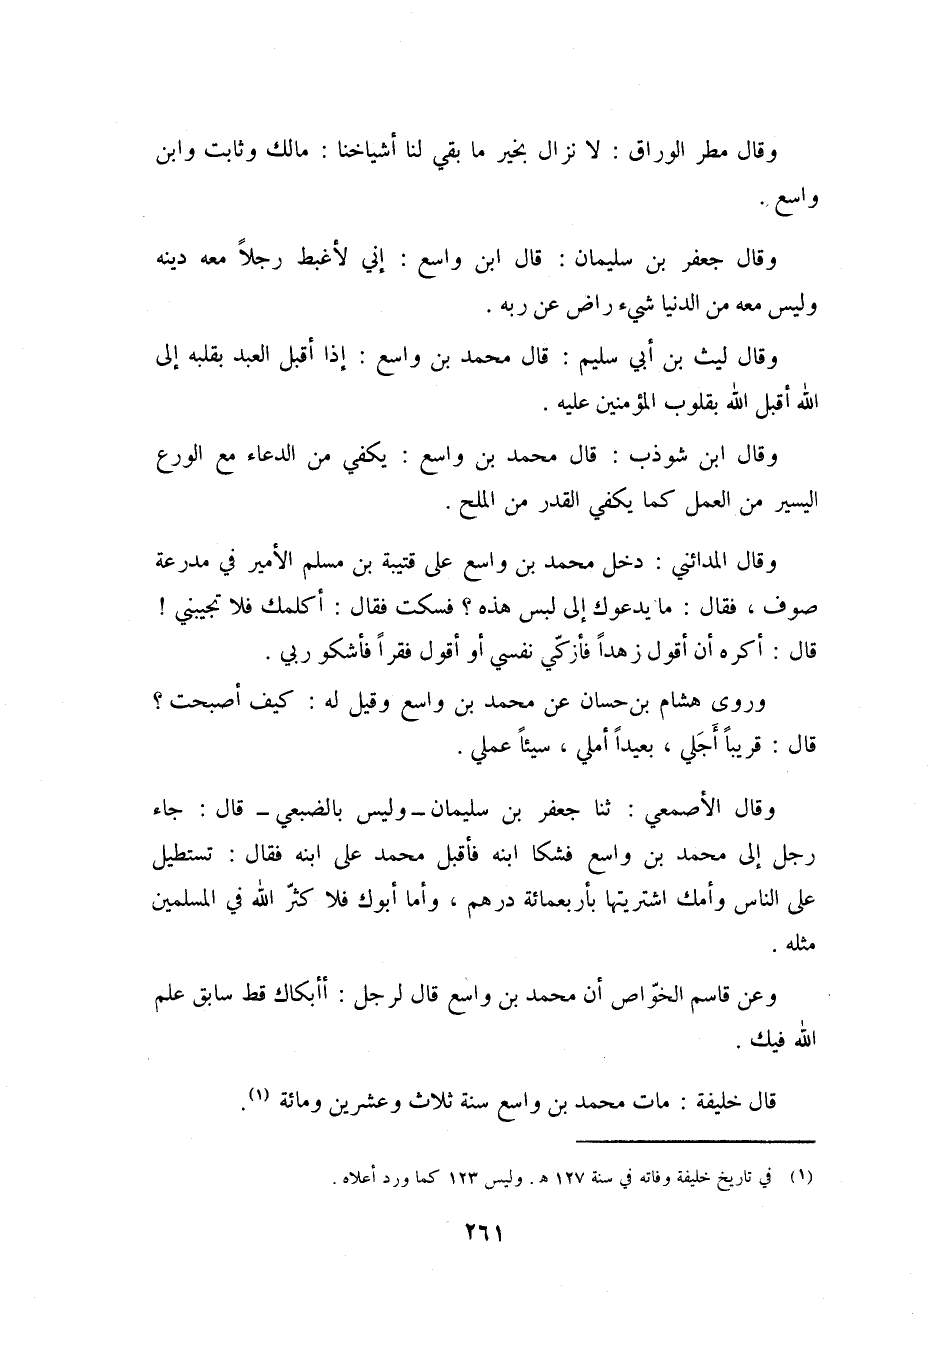 وقال مطر الوراق : لا نزال بخير ما بقي لنا أشياخنا : مالك وثابت وابن
واسع .
وقال جعفر بن سليمان : قال ابن واسع : إني لأغبط رجلاً معه دينه
وليس معه من الدنيا شيء راض عن ربه .
وقال ليث بن أبي سليم : قال محمد بن واسع : إذا أقبل العبد بقلبه إلى
الله أقبل الله بقلوب المؤمنين عليه .
وقال ابن شوذب : قال محمد بن واسع : يكفي من الدعاء مع الورع
اليسير من العمل كما يكفي القدر من الملح .
وقال المدائني : دخل محمد بن واسع على قتيبة بن مسلم الأمير في مدرعة
صوف ، فقال : ما يدعوك إلى لبس هذه ؟ فسكت فقال : أكلمك فلا تجيبني !
قال : أكره أن أقول زهداً فأزكّي نفسي أو أقول فقراً فأشكو ربي .
وروى هشام بن حسان عن محمد بن واسع وقيل له : كيف أصبحت ؟
قال : قريباً أَجَلي ، بعيداً أملي ، سيئاً عملي .
وقال الأصمعي : ثنا جعفر بن سليمان – وليس بالضبعي – قال : جاء
رجل إلى محمد بن واسع فشكا ابنه فأقبل محمد على ابنه فقال : تستطيل
على الناس وأمك اشتريتها بأربعمائة درهم ، وأما أبوك فلا كثّر الله في المسلمين
مثله .
وعن قاسم الخوّاص أن محمد بن واسع قال لرجل : أأبكاك قط سابق علم
الله فيك .
قال خليفة : مات محمد بن واسع سنة ثلاث وعشرين ومائة (١).
(١) في تاريخ خليفة وفاته في سنة ١٢٧ ه . وليس ١٢٣ كما ورد أعلاه .
٢٦١